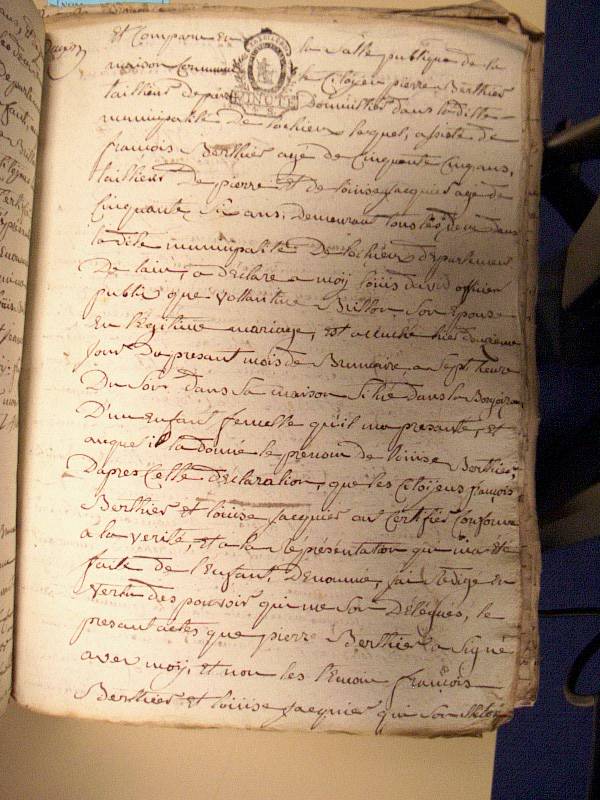 Et Comparu En la salle publique de la
maison Commune le Citoyen pierre Berthier
taillieur de pierre Domicilier dans la ditte
municipalité de Lochieu lequel, assisté de
françois Berthier agé de Cinquante Cinq ans,
tailleur de pierre Et de louise Jacquier agé de
Cinquante Six ans, demeurant tous les deux dans
la dite municipalité De lochieu département
De lain, a déclaré a moy louis david officier
public que Vallantine Billon Son Epouse
En légitime mariage, Est accuché hier douzieme
Jour Du presant mois de Brumaire a Sept heure
Du Soir dans sa maison Situé dans la
D'un Enfant femelle qu'il ma presanté, Et
auquel il la donné le prenom de louise Berthier,
Dapres Cette déclaration, que les Citoyens françois
Berthier Et louise Jacquier ont Certifier Conforme
a la verité, Et a la Représentation qui ma été
faite de l'Enfant Denommé, jai Rédigé En
vertu des pouvoir qui me Son Délégués, le
presant actes que pierre Berthier a Signé
avec moy, Et non les temoin françois
Berthier Et louise Jacquier qui Son
MINUTE